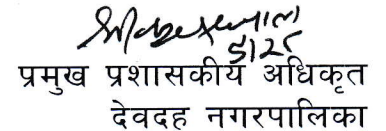 5125
प्रमुख प्रशासकीय अधिकृत
देवदह नगरपालिका